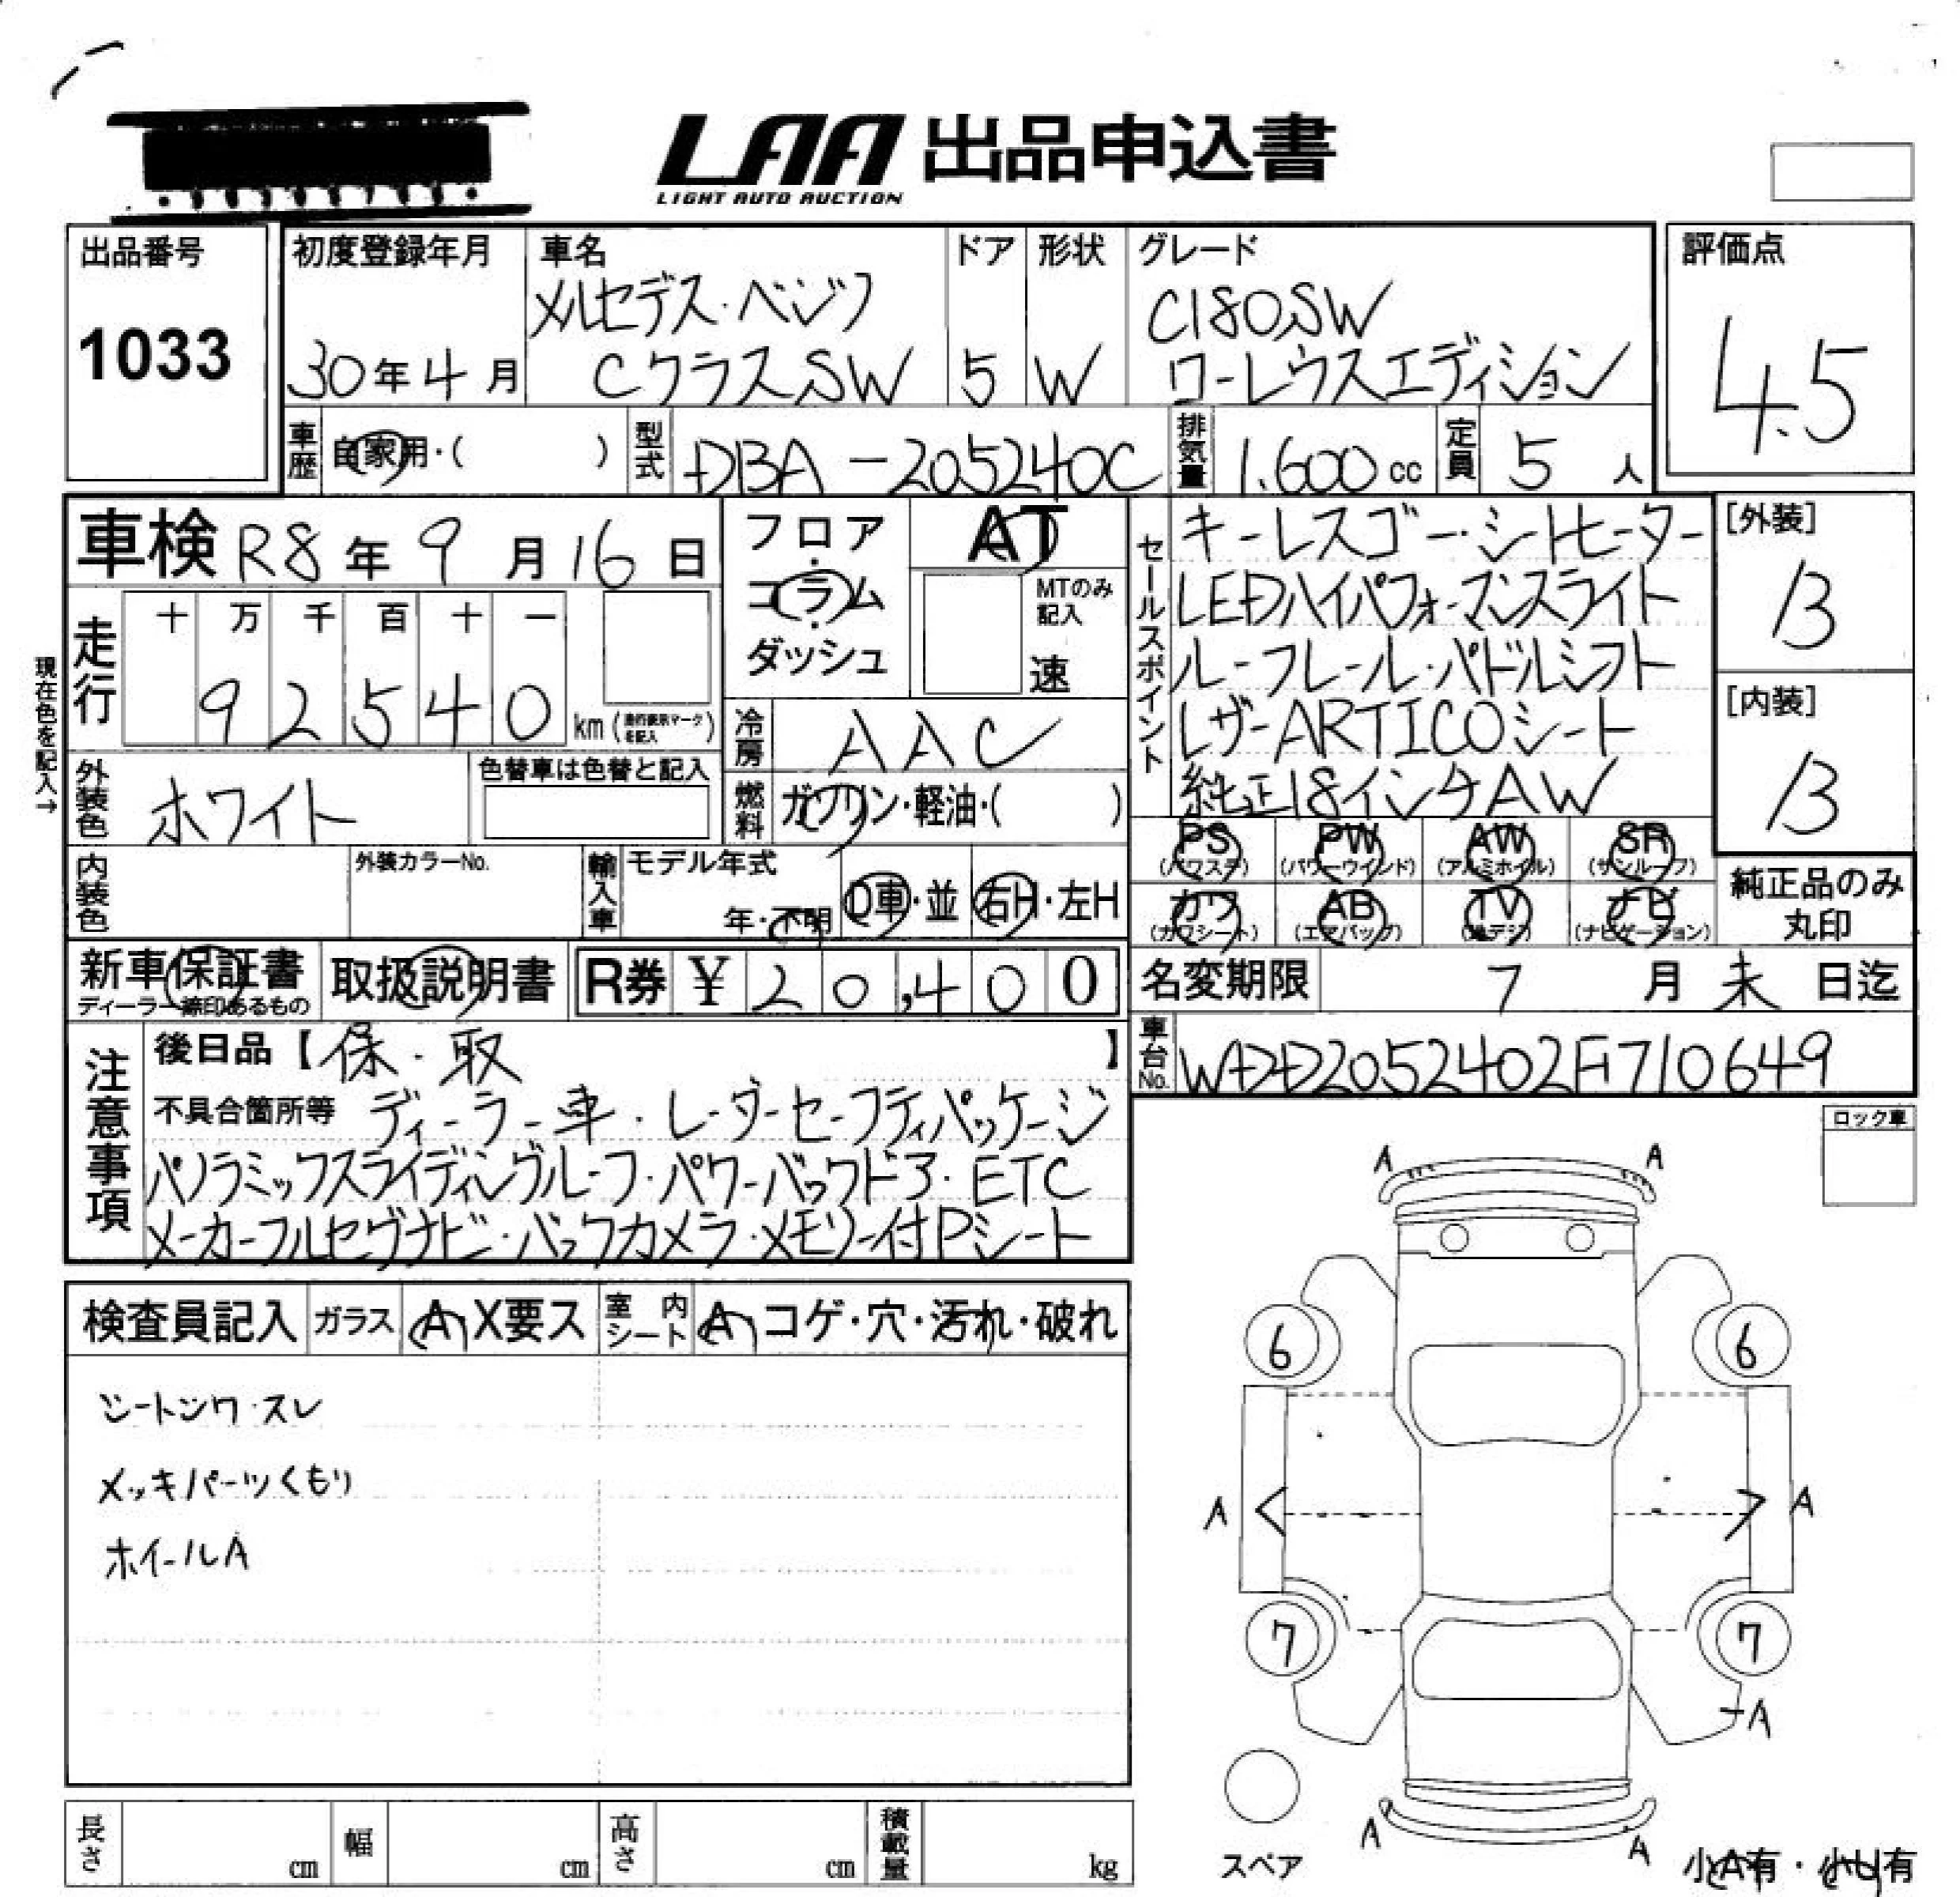 LAA 出品申込書
LIGHT AUTO AUCTION
出品番号
1033
初度登録年月
30年4月
車名
メルセデス・ベンツ
CクラスSW
ドア
5
形状
W
グレード
C180SW
ローレウスエディション
評価点
4.5
車歴
自家用・( )
型式
DBA-205240C
排気量
1.600cc
定員
5人
車検 R8年9月16日
走行
十 万 千 百 十 一
92540
km(走行表示マークを記入)
現在色を記入→
フロア・コラム・ダッシュ
AT
MTのみ記入
速
冷房
AAC
燃料
ガソリン・軽油・( )
外装色
ホワイト
色替車は色替と記入
内装色
外装カラーNo.
輸入車
モデル年式
年・不明
D車・並
右H・左H
セールスポイント
キーレスゴー・シートヒーター
LEDハイパフォーマンスライト
ルーフレール・パドルシフト
レザーARTICOシート
純正18インチAW
[外装]
B
[内装]
B
PS (パワステ) PW (パワーウインド) AW (アルミホイル) SR (サンルーフ)
カワ (カワシート) AB (エアバッグ) TV (地デジ) ナビ (ナビゲーション)
純正品のみ丸印
新車保証書
ディーラー締印あるもの
取扱説明書
R券 ¥20,400
名変期限 7月末日迄
車台No.
WDD2052402F710649
注意事項
後日品【保・取】
不具合箇所等 ディーラー車・レーダーセーフティパッケージ
パノラミックスライディングルーフ・パワーバックドア・ETC
メーカーフルセグナビ・バックカメラ・メモリー付Pシート
ロック車
検査員記入
ガラス A X要ス
室内シート A・コゲ・穴・汚れ・破れ
シートシワ・スレ
メッキパーツくもり
ホイールA
A A
6 6
A < > A
7 7
A
A A
スペア
小A有・小U有
長さ cm
幅 cm
高さ cm
積載量 kg